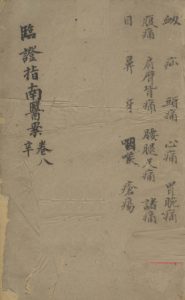 衂 疝 頭痛 心痛 胃脘痛
腹痛 肩臂背痛 腰腿足痛 諸痛
目 鼻 牙 咽喉 瘡瘍
臨證指南醫案 卷八